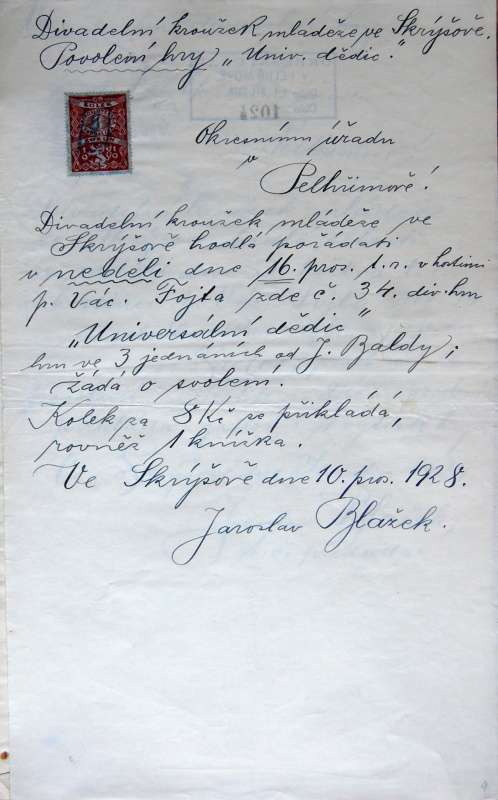 Divadelní kroužek mládeže ve Skrýšově.
Povolení hry „Univ. dědic."
1024
KOLEK
Okresnímu úřadu
v
Pelhřimově!
Divadelní kroužek mládeže ve
Skrýšově hodlá pořádati
v neděli dne 16. pros. t. r. v hostinci
p. Vác. Fojta zde č. 34. div. hru
„Universální dědic"
hru ve 3 jednáních od J. Baldy;
žádá o svolení.
Kolek za 8 Kč se přikládá,
rovněž 1 knížka.
Ve Skrýšově dne 10. pros. 1928.
Jaroslav Blažek.
9